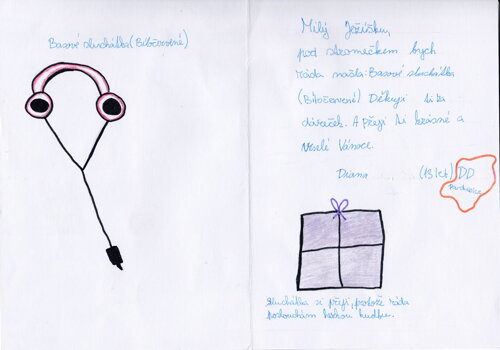 Basové sluchátka (Bíločervené)
Milý Ježíšku,
pod stromečkem bych
ráda našla: Basové sluchátka
(Bíločervené) Děkuji ti za
dáreček. A přeji ti krásné a
veselé Vánoce.
Diana (13 let) DD
Sluchátka si přeji, protože ráda
poslouchám hudbu.